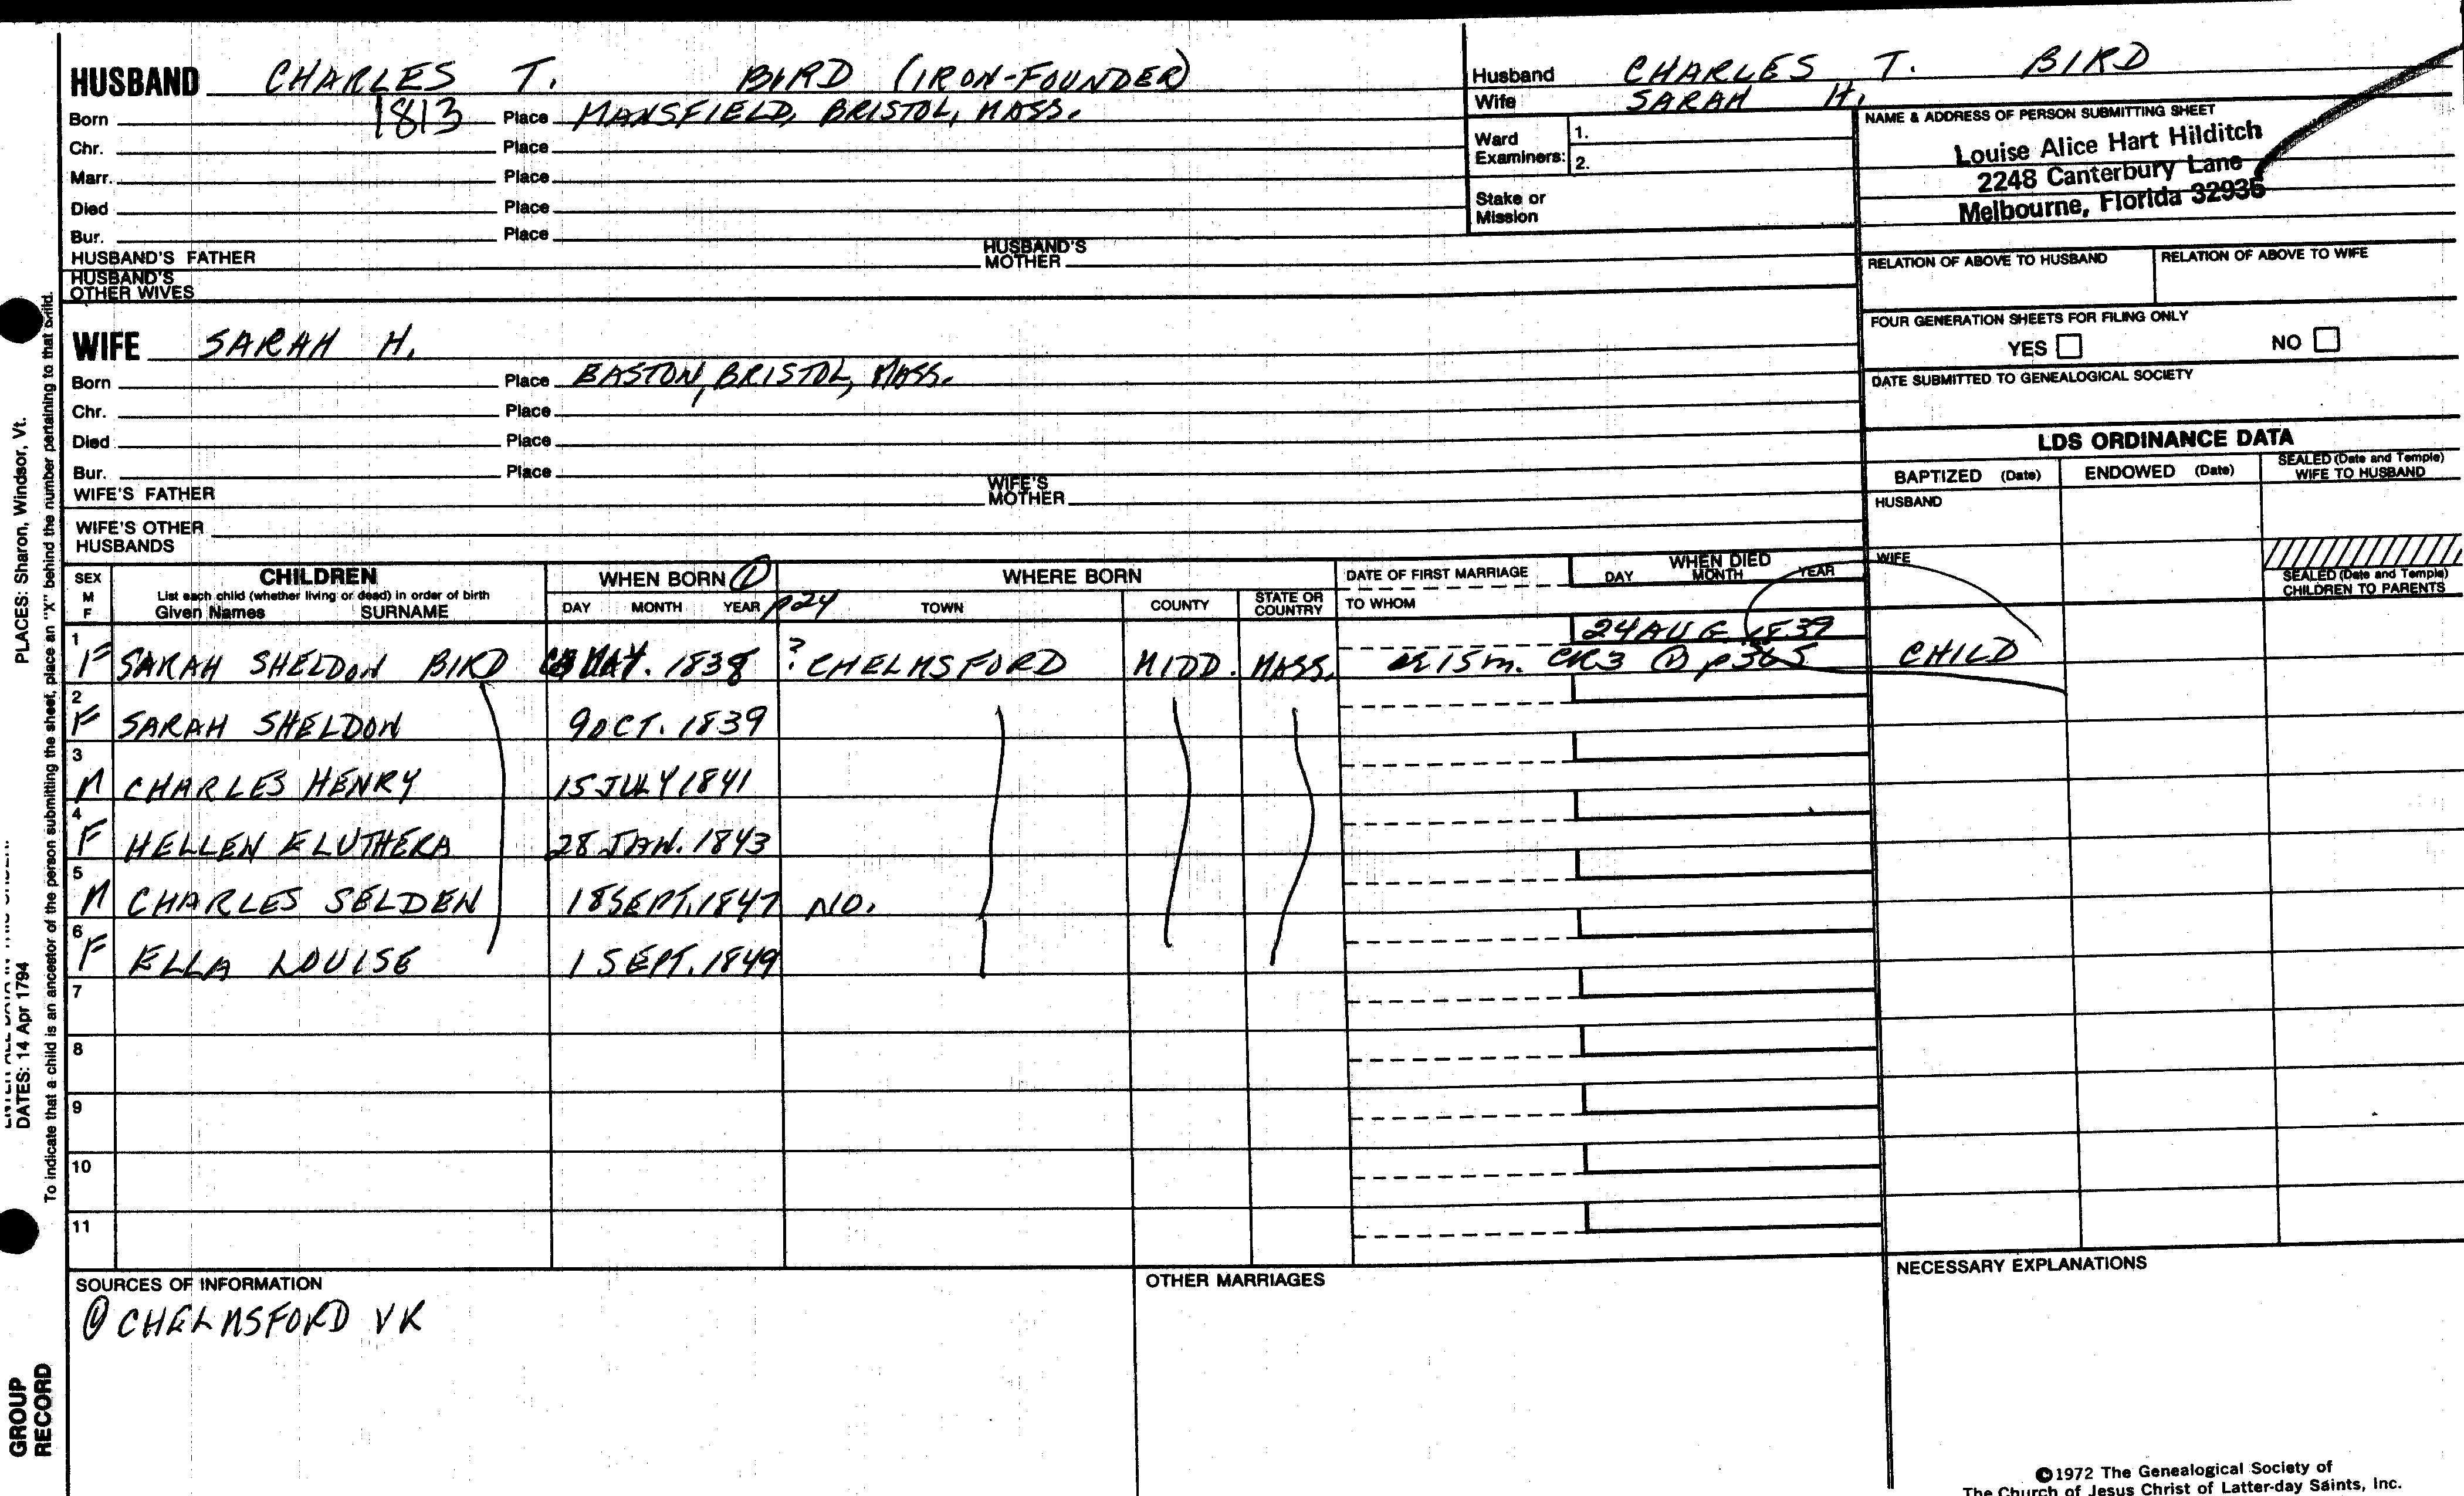 HUSBAND CHARLES T. BIRD (IRON-FOUNDER)
Born 1813 Place MANSFIELD, BRISTOL, MASS.
Chr. Place
Marr. Place
Died Place
Bur. Place
HUSBAND'S FATHER HUSBAND'S MOTHER
HUSBAND'S OTHER WIVES
WIFE SARAH H.
Born Place EASTON, BRISTOL, MASS.
Chr. Place
Died Place
Bur. Place
WIFE'S FATHER WIFE'S MOTHER
WIFE'S OTHER HUSBANDS
Husband CHARLES T. BIRD
Wife SARAH H.
Ward Examiners: 1.
2.
Stake or Mission
NAME & ADDRESS OF PERSON SUBMITTING SHEET
Louise Alice Hart Hilditch
2248 Canterbury Lane
Melbourne, Florida 32935
RELATION OF ABOVE TO HUSBAND RELATION OF ABOVE TO WIFE
FOUR GENERATION SHEETS FOR FILING ONLY
YES NO
DATE SUBMITTED TO GENEALOGICAL SOCIETY
LDS ORDINANCE DATA
BAPTIZED (Date) ENDOWED (Date) SEALED (Date and Temple) WIFE TO HUSBAND
HUSBAND
WIFE
SEALED (Date and Temple) CHILDREN TO PARENTS
SEX M F CHILDREN WHEN BORN ① WHERE BORN DATE OF FIRST MARRIAGE WHEN DIED
List each child (whether living or dead) in order of birth DAY MONTH YEAR
Given Names SURNAME DAY MONTH YEAR p24 TOWN COUNTY STATE OR COUNTRY TO WHOM
24 AUG. 1839
1 F SARAH SHELDON BIRD MAY. 1838 ? CHELMSFORD MIDD. MASS. 15m. CR3 ① p365 CHILD
2 F SARAH SHELDON 9 OCT. 1839
3 M CHARLES HENRY 15 JULY 1841
4 F HELLEN ELUTHERA 28 JAN. 1843
5 M CHARLES SELDEN 18 SEPT. 1847 NO.
6 F ELLA LOUISE 1 SEPT. 1849
7
8
9
10
11
SOURCES OF INFORMATION OTHER MARRIAGES NECESSARY EXPLANATIONS
① CHELMSFORD VR
©1972 The Genealogical Society of
The Church of Jesus Christ of Latter-day Saints, Inc.
PLACES: Sharon, Windsor, Vt.
DATES: 14 Apr 1794
To indicate that a child is an ancestor of the person submitting the sheet, place an "X" behind the number pertaining to that child.
GROUP
RECORD